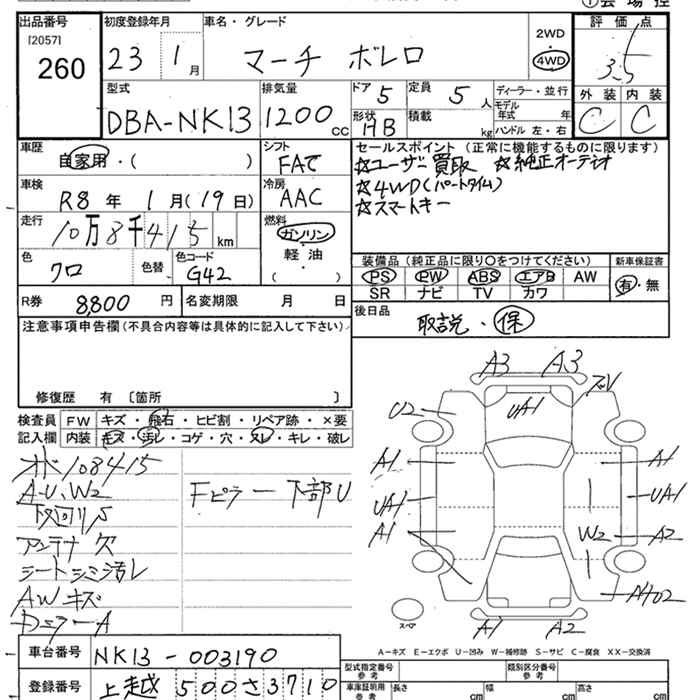 ①会場控
出品番号
[2057]
260
初度登録年月
23 1月
車名・グレード
マーチ ボレロ
2WD
4WD
評価点
3.5
外装 内装
C C
型式
DBA-NK13
排気量
1200cc
ドア 5
定員 5人
形状 HB
積載 kg
ディーラー・並行
モデル年式 年
ハンドル 左・右
車歴
自家用・( )
シフト
FAT
車検
R8年 1月(19日)
冷房
AAC
走行
10万8千415km
燃料
ガソリン
軽油
( ・ )
色
クロ
色替
色コード
G42
R券 8,800円
名変期限 月 日
セールスポイント (正常に機能するものに限ります)
☆ユーザー買取 ☆純正オーディオ
☆4WD(パートタイム)
☆スマートキー
装備品 (純正品に限り○をつけてください)
PS PW ABS エアB AW
SR ナビ TV カワ
新車保証書
有・無
後日品
取説・保
注意事項申告欄(不具合内容等は具体的に記入して下さい)
修復歴 有 〔箇所 〕
検査員記入欄
FW キズ・飛石・ヒビ割・リペア跡・×要
内装 キズ・汚レ・コゲ・穴・スレ・キレ・破レ
オド108415
A-U、W2
下回りS
アンテナ欠
シートシミ汚レ
AWキズ
DミラーA
Fピラー下部U
A3 A3
U2
UA1
A1 A1
UA1 UA1
A1
W2 A2
A1 A2
スペア
A-キズ E-エクボ U-凹み W-補修跡 S-サビ C-腐食 XX-交換済
車台番号 NK13-003190
登録番号 上越500さ3710
型式指定番号 参考
類別区分番号 参考
車庫証明用 参考
長さ cm 幅 cm 高さ cm